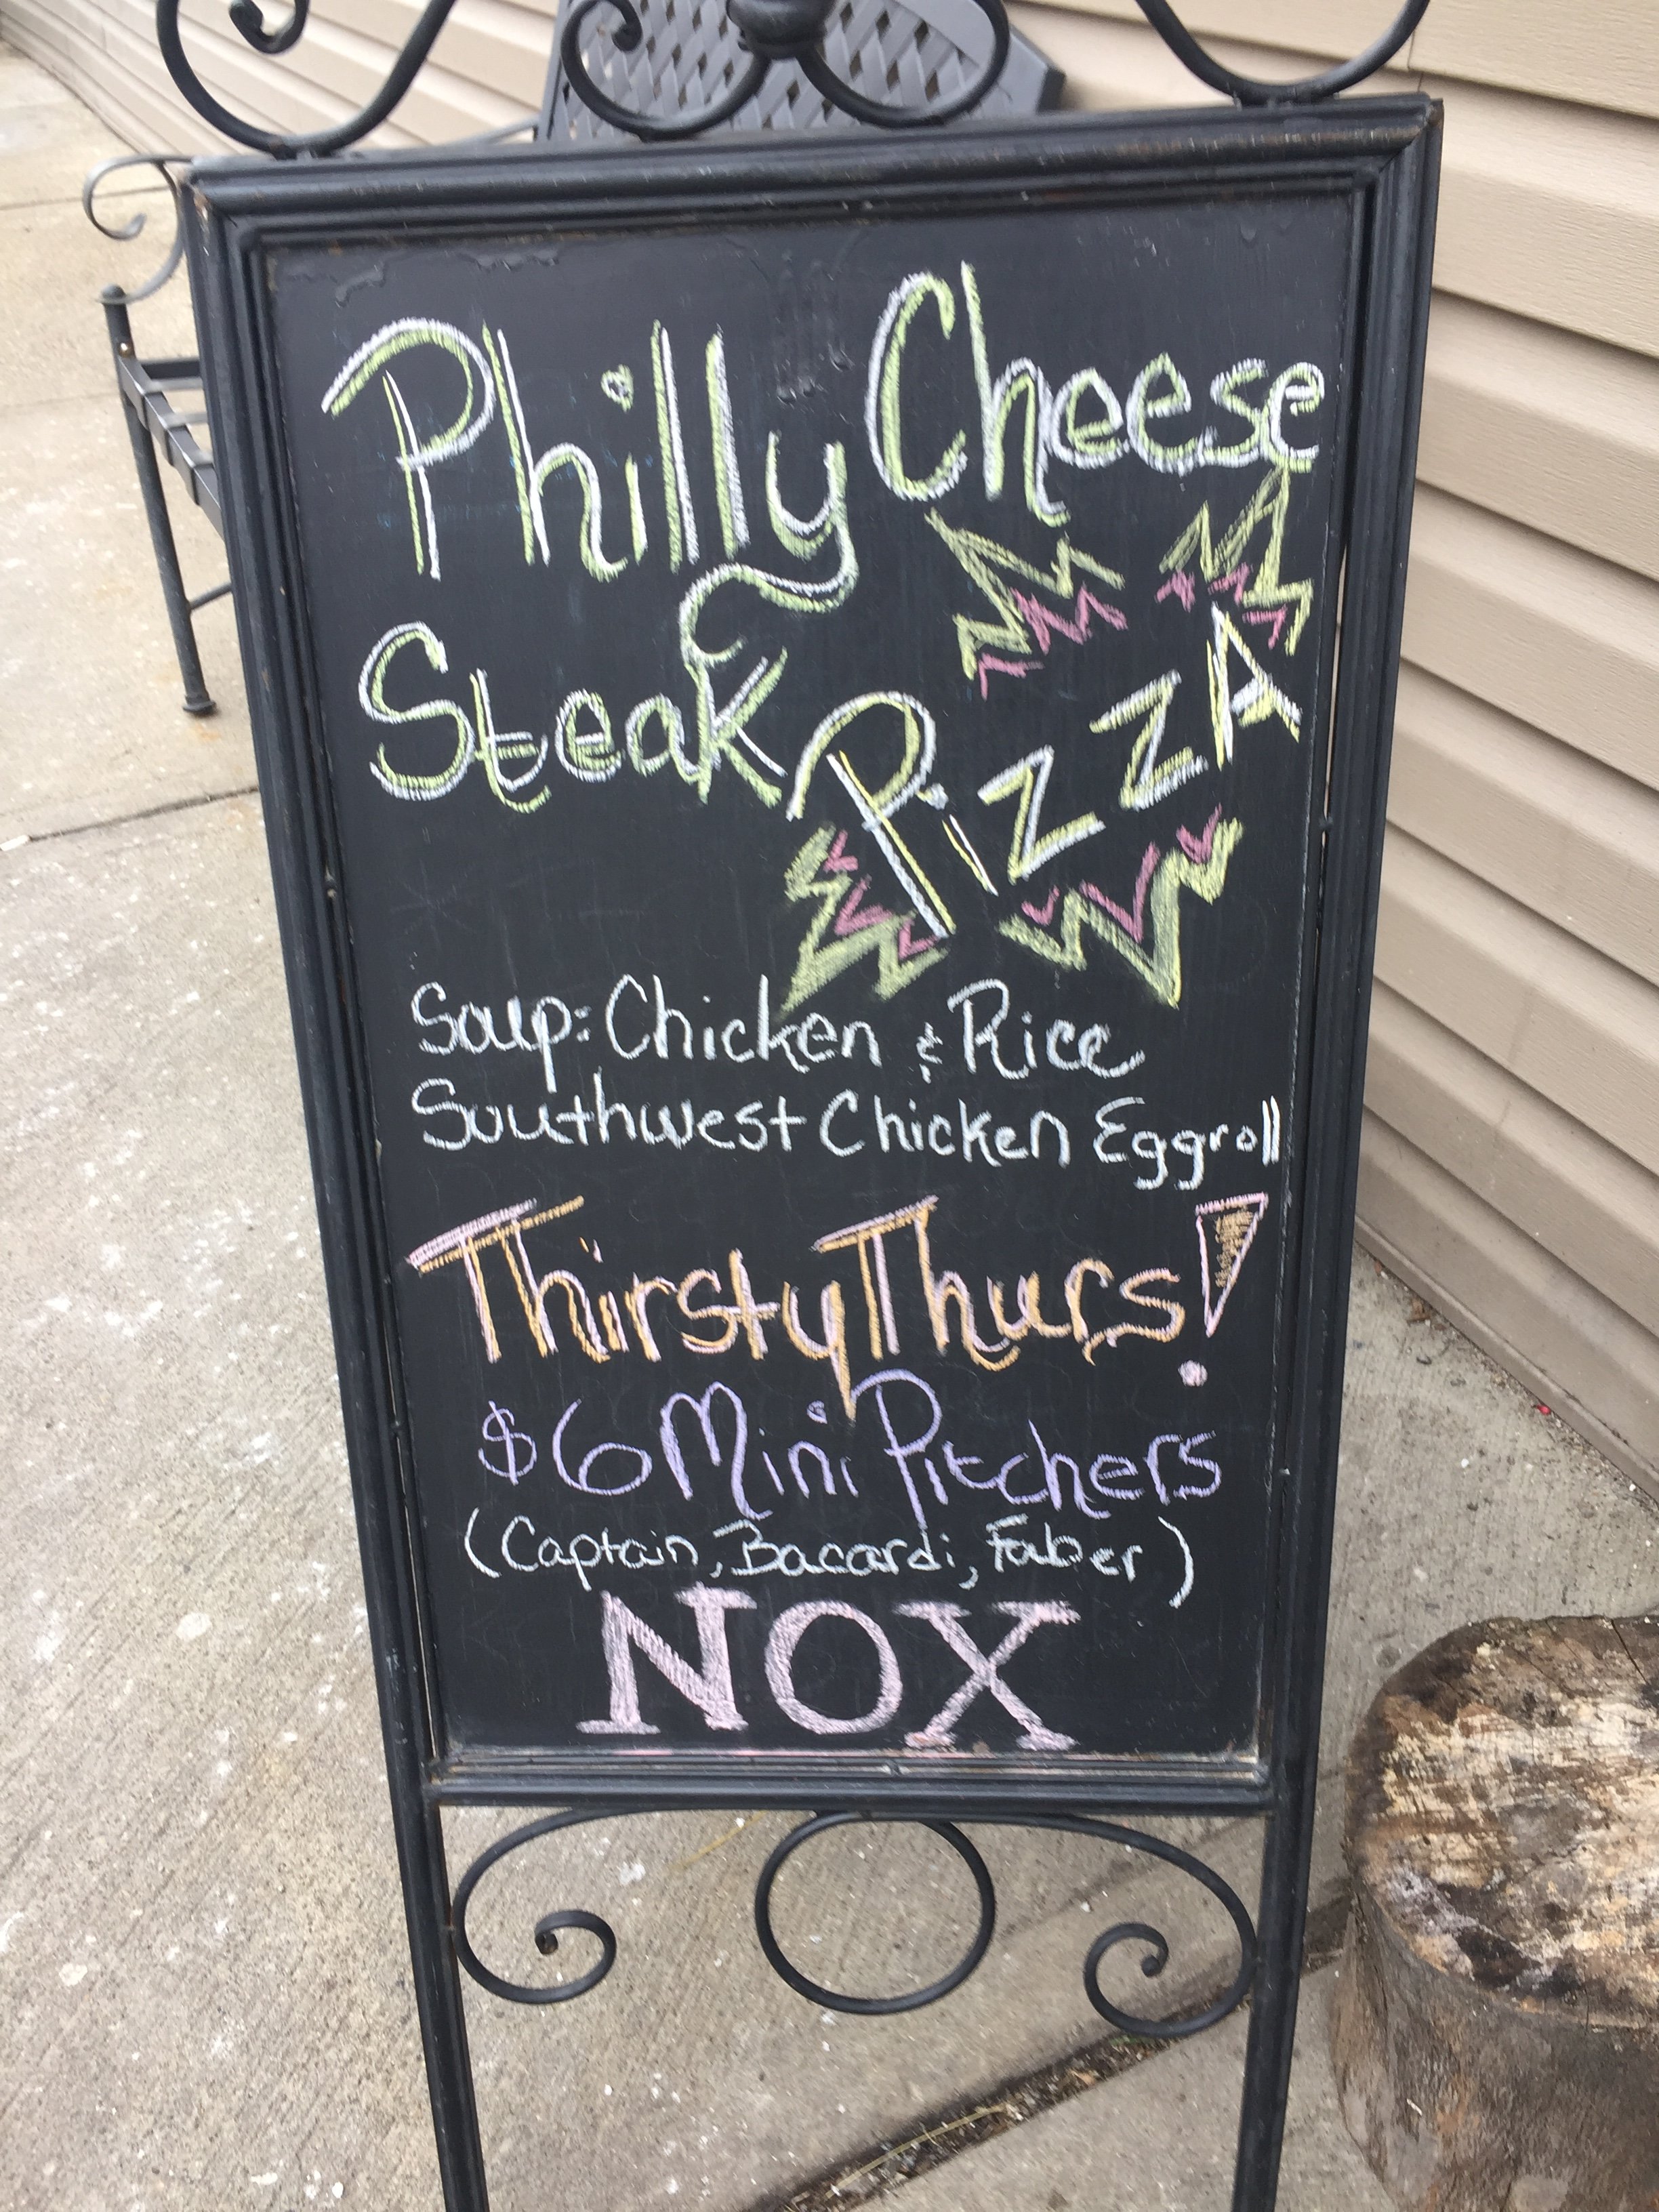 Philly Cheese
Steak PizzA
Soup: Chicken & Rice
Southwest Chicken Eggroll
Thirsty Thurs!
$6 Mini Pitchers
(Captain, Bacardi, Faber)
NOX